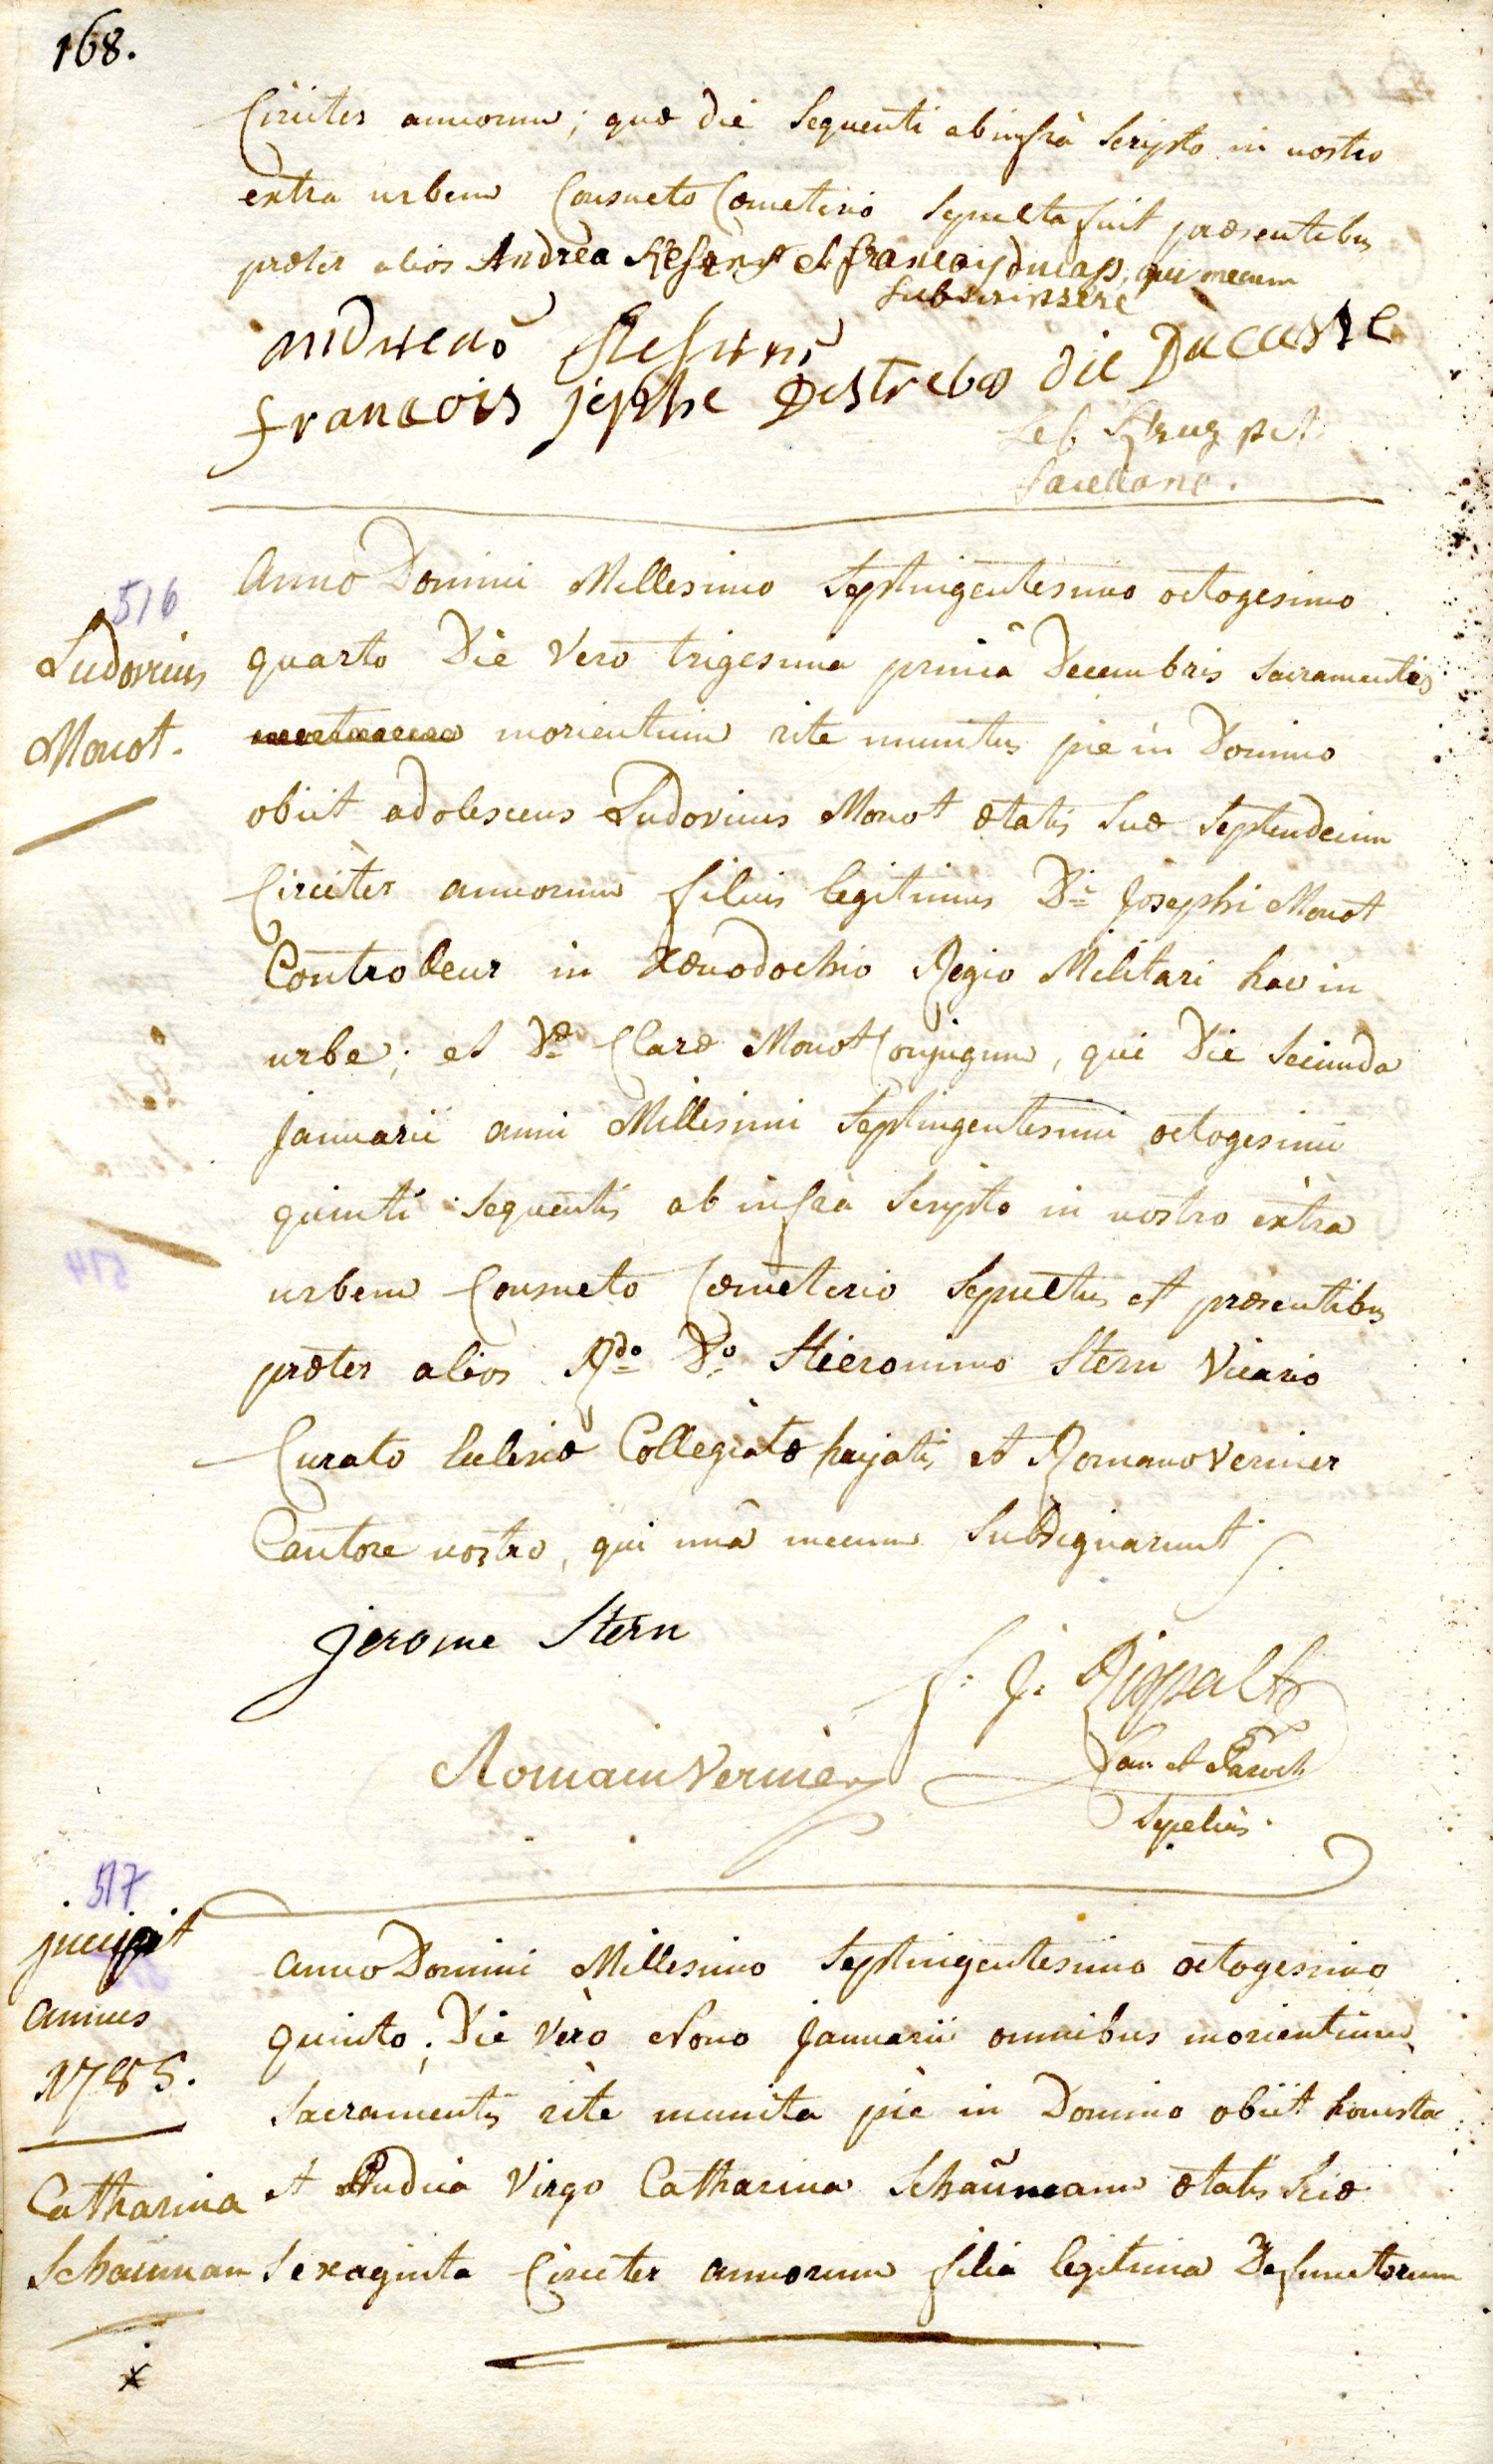 168.
Circiter annorum; quæ die Sequenti ab infrà Scripto in nostro
extra urbem Consueto Cœmeterio Sepulta fuit præsentibus
præter alios Andrea et francois ducass, qui mecum
Subscripsere
andreas
francois jsphe Destrebo dit Ducasse
Sacellano.
516
Ludovicus
Monot.
Anno Domini Millesimo Septingentesimo octogesimo
quarto Die Vero trigesima primâ Decembris Sacramentis
morientium rite munitus pie in Domino
obiit adolescens Ludovicus Monot ætatis Suæ Septendecim
Circiter annorum filius legitimus Di Josephi Monot
Controleur in Xenodochio Regio Militari hac in
urbe; et Dæ Claræ Monot Conjugum, qui Die Secunda
januarii anni Millesimi Septingentesimi octogesimi
quinti Sequentis ab infrà Scripto in nostro extra
urbem Consueto Cœmeterio Sepultus est præsentibus
præter alios Rdo Do Hieronimo Stern Vicario
Curato Eclesiæ Collegiatæ hujatis et Romano Vernier
Cantore nostro, qui unà mecum Subsignarunt
jerome Stern
f. J. Rippalt
Can et Paroch
Sepelivi.
Romain Vernier
517
jncipit
annus
1785.
Catharina
Schauman
Anno Domini Millesimo Septingentesimo octogesimo
quinto; Die Vèro Nono Januarii omnibus morientium
Sacramentis ritè munita piè in Domino obiit honesta
et Pudica Virgo Catharina Schaũmann ætatis Suæ
Sexaginta Circiter annorum filia legitima Defunctorum